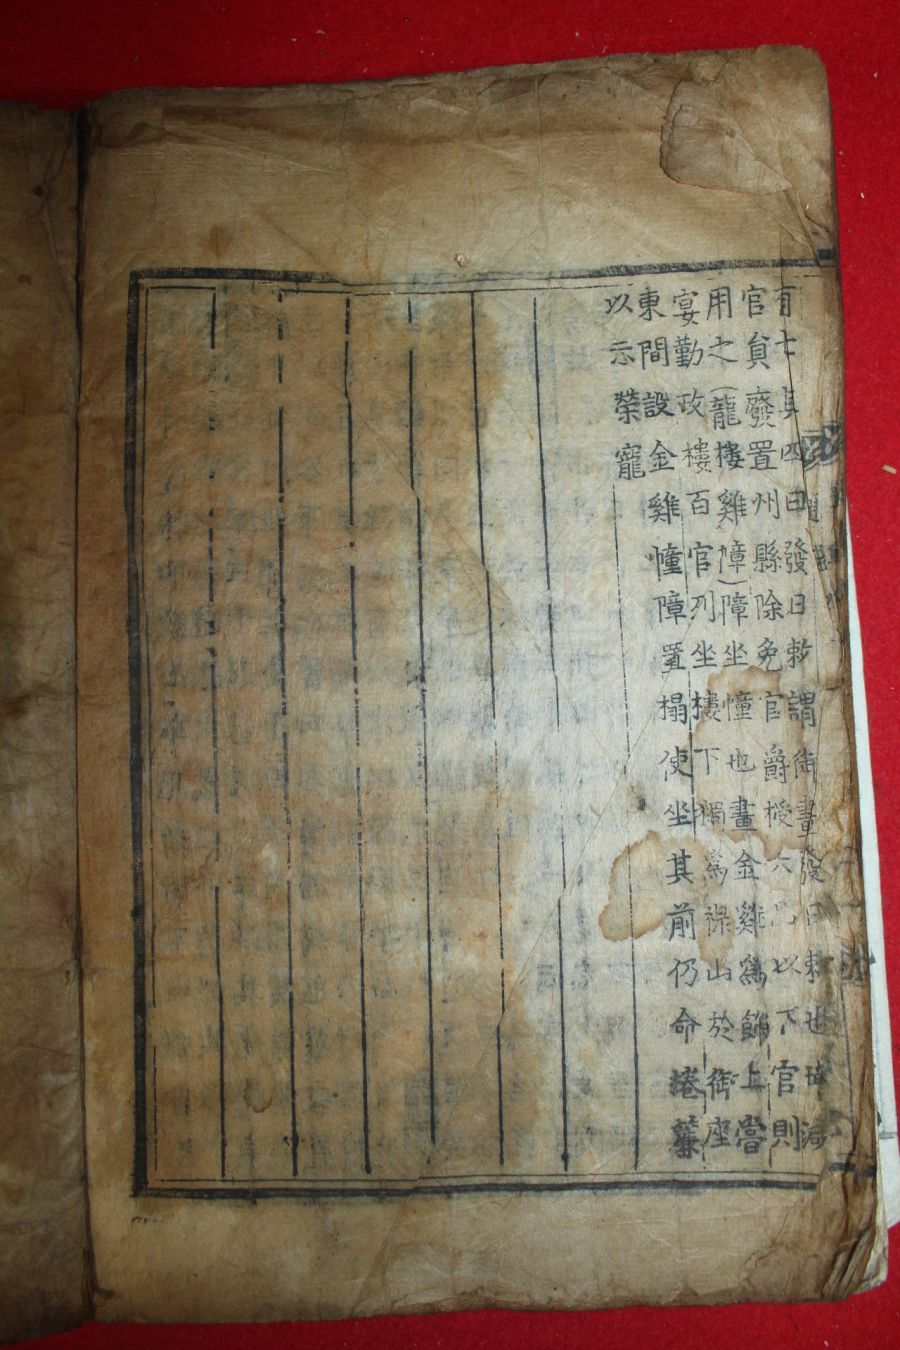 有七 四曰發日敕謂御畫發日敕也
官員廢置州縣除免官爵授六品以下官則
用之(龍樓雞障)障坐憧也畫金雞爲飾上嘗
宴勤政樓百官列坐樓下獨爲祿山於御座
東間設金雞憧障置榻使坐其前仍命捲簾
以示榮寵